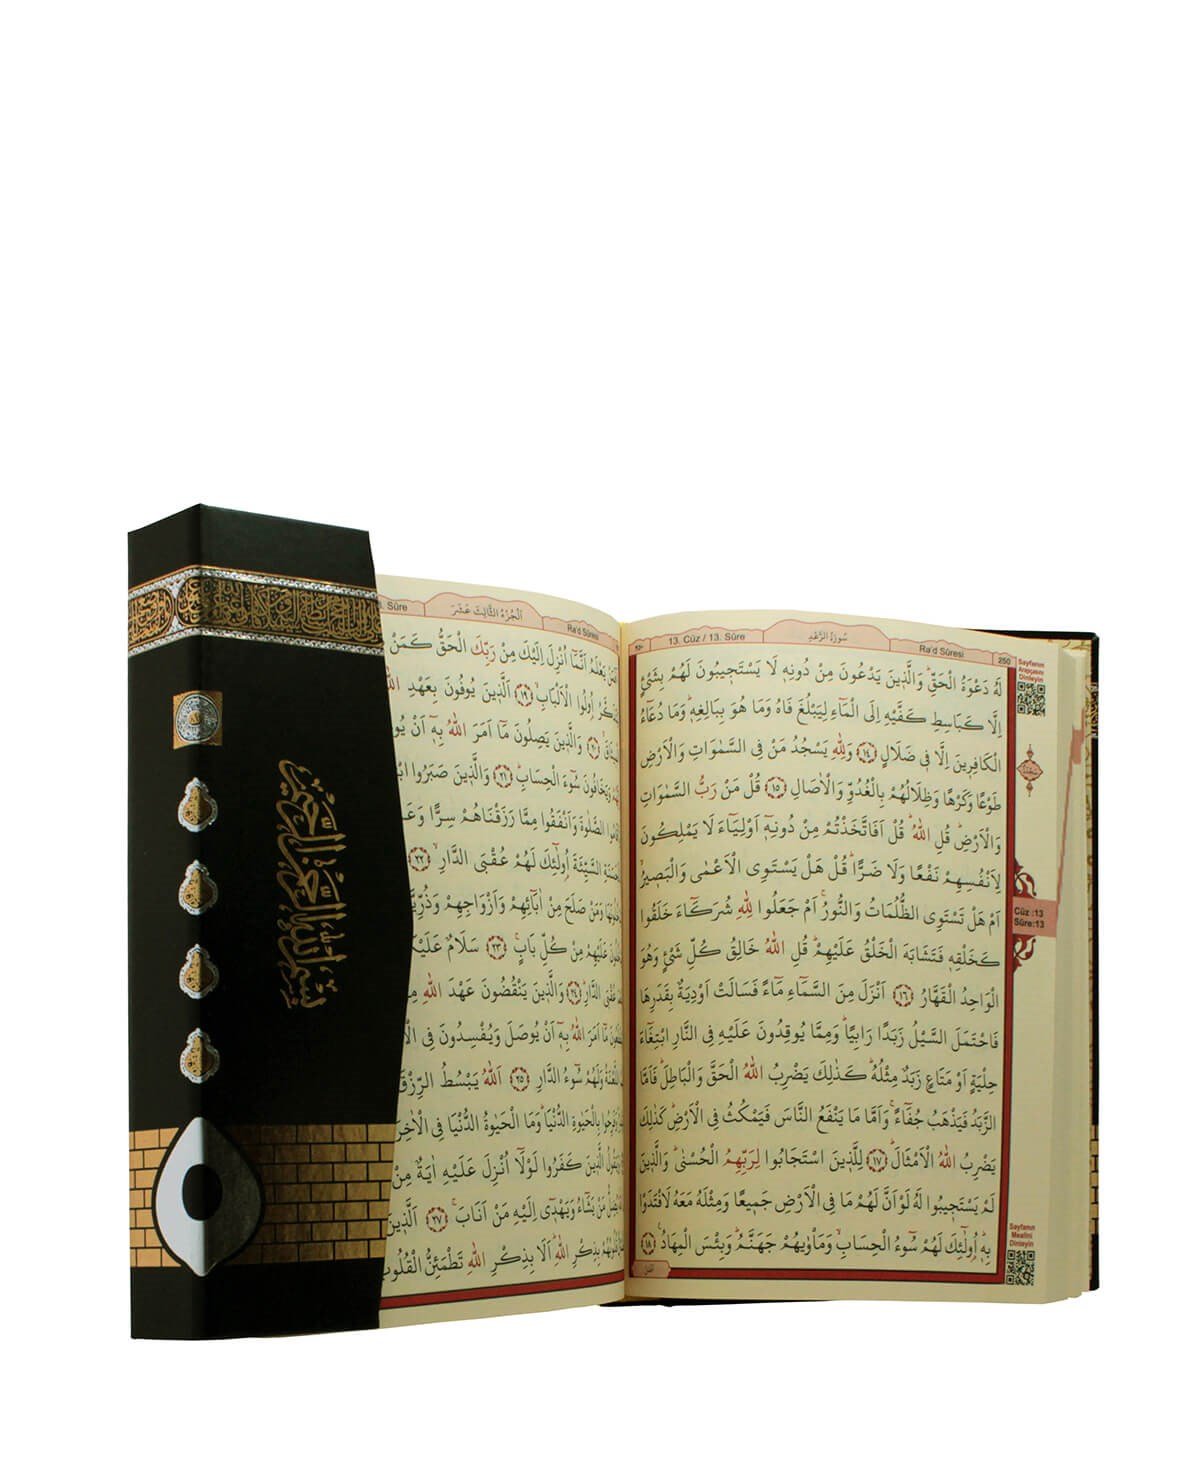 13. Cüz / 13. Sûre سُورَةُ الرَّعْدِ Ra'd Sûresi 250
لَهُ دَعْوَةُ الْحَقِّۜ وَالَّذ۪ينَ يَدْعُونَ مِنْ دُونِه۪ لَا يَسْتَج۪يبُونَ لَهُمْ بِشَيْءٍ
اِلَّا كَبَاسِطِ كَفَّيْهِ اِلَى الْمَٓاءِ لِيَبْلُغَ فَاهُ وَمَا هُوَ بِبَالِغِه۪ۜ وَمَا دُعَٓاءُ
الْكَافِر۪ينَ اِلَّا ف۪ي ضَلَالٍ ﴿١٤﴾ وَلِلّٰهِ يَسْجُدُ مَنْ فِي السَّمٰوَاتِ وَالْاَرْضِ
طَوْعًا وَكَرْهًا وَظِلَالُهُمْ بِالْغُدُوِّ وَالْاٰصَالِ ﴿١٥﴾ قُلْ مَنْ رَبُّ السَّمٰوَاتِ
وَالْاَرْضِۜ قُلِ اللّٰهُۜ قُلْ اَفَاتَّخَذْتُمْ مِنْ دُونِه۪ٓ اَوْلِيَٓاءَ لَا يَمْلِكُونَ
لِاَنْفُسِهِمْ نَفْعًا وَلَا ضَرًّاۜ قُلْ هَلْ يَسْتَوِي الْاَعْمٰى وَالْبَص۪يرُ
اَمْ هَلْ تَسْتَوِي الظُّلُمَاتُ وَالنُّورُۚ اَمْ جَعَلُوا لِلّٰهِ شُرَكَٓاءَ خَلَقُوا
كَخَلْقِه۪ فَتَشَابَهَ الْخَلْقُ عَلَيْهِمْۜ قُلِ اللّٰهُ خَالِقُ كُلِّ شَيْءٍ وَهُوَ
الْوَاحِدُ الْقَهَّارُ ﴿١٦﴾ اَنْزَلَ مِنَ السَّمَٓاءِ مَٓاءً فَسَالَتْ اَوْدِيَةٌ بِقَدَرِهَا
فَاحْتَمَلَ السَّيْلُ زَبَدًا رَابِيًاۜ وَمِمَّا يُوقِدُونَ عَلَيْهِ فِي النَّارِ ابْتِغَٓاءَ
حِلْيَةٍ اَوْ مَتَاعٍ زَبَدٌ مِثْلُهُۜ كَذٰلِكَ يَضْرِبُ اللّٰهُ الْحَقَّ وَالْبَاطِلَۜ فَاَمَّا
الزَّبَدُ فَيَذْهَبُ جُفَٓاءًۚ وَاَمَّا مَا يَنْفَعُ النَّاسَ فَيَمْكُثُ فِي الْاَرْضِۜ كَذٰلِكَ
يَضْرِبُ اللّٰهُ الْاَمْثَالَۜ ﴿١٧﴾ لِلَّذ۪ينَ اسْتَجَابُوا لِرَبِّهِمُ الْحُسْنٰىۜ وَالَّذ۪ينَ
لَمْ يَسْتَج۪يبُوا لَهُ لَوْ اَنَّ لَهُمْ مَا فِي الْاَرْضِ جَم۪يعًا وَمِثْلَهُ مَعَهُ لَافْتَدَوْا
بِه۪ۜ اُو۬لٰٓئِكَ لَهُمْ سُٓوءُ الْحِسَابِ وَمَأْوٰيهُمْ جَهَنَّمُۜ وَبِئْسَ الْمِهَادُ۟ ﴿١٨﴾
Sayfanın
Arapçasını
Dinleyin
Cüz :13
Sûre:13
Sayfanın
Mealini
Dinleyin
. Sûre اَلْجُزْءُ الثَّالِثَ عَشَرَ Ra'd Sûresi
يَعْلَمُ اَنَّمَٓا اُنْزِلَ اِلَيْكَ مِنْ رَبِّكَ الْحَقُّ كَمَنْ
اُو۬لُوا الْاَلْبَابِۙ ﴿١٩﴾ اَلَّذ۪ينَ يُوفُونَ بِعَهْدِ
وَالَّذ۪ينَ يَصِلُونَ مَٓا اَمَرَ اللّٰهُ بِه۪ٓ اَنْ
وَيَخَافُونَ سُٓوءَ الْحِسَابِۜ ﴿٢١﴾ وَالَّذ۪ينَ صَبَرُوا
الصَّلٰوةَ وَاَنْفَقُوا مِمَّا رَزَقْنَاهُمْ سِرًّا
السَّيِّئَةَ اُو۬لٰٓئِكَ لَهُمْ عُقْبَى الدَّارِۙ ﴿٢٢﴾
وَمَنْ صَلَحَ مِنْ اٰبَٓائِهِمْ وَاَزْوَاجِهِمْ
عَلَيْهِمْ مِنْ كُلِّ بَابٍۚ ﴿٢٣﴾ سَلَامٌ
عُقْبَى الدَّارِۜ ﴿٢٤﴾ وَالَّذ۪ينَ يَنْقُضُونَ عَهْدَ اللّٰهِ
مَٓا اَمَرَ اللّٰهُ بِه۪ٓ اَنْ يُوصَلَ وَيُفْسِدُونَ فِي
اللَّعْنَةُ وَلَهُمْ سُٓوءُ الدَّارِ ﴿٢٥﴾ اَللّٰهُ يَبْسُطُ الرِّزْقَ
بِالْحَيٰوةِ الدُّنْيَاۜ وَمَا الْحَيٰوةُ الدُّنْيَا فِي
الَّذ۪ينَ كَفَرُوا لَوْلَٓا اُنْزِلَ عَلَيْهِ اٰيَةٌ مِنْ
مَنْ يَشَٓاءُ وَيَهْد۪ٓي اِلَيْهِ مَنْ اَنَابَۚ ﴿٢٧﴾ اَلَّذ۪ينَ
بِذِكْرِ اللّٰهِۜ اَلَا بِذِكْرِ اللّٰهِ تَطْمَئِنُّ الْقُلُوبُ
بسم الله الرحمن الرحيم